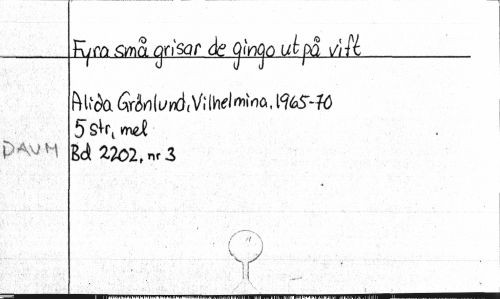 Fyra små grisar de gingo ut på vift
Alida Grönlund, Vilhelmina, 1965-70
5 str, mel
DAUM Bd 2202, nr 3